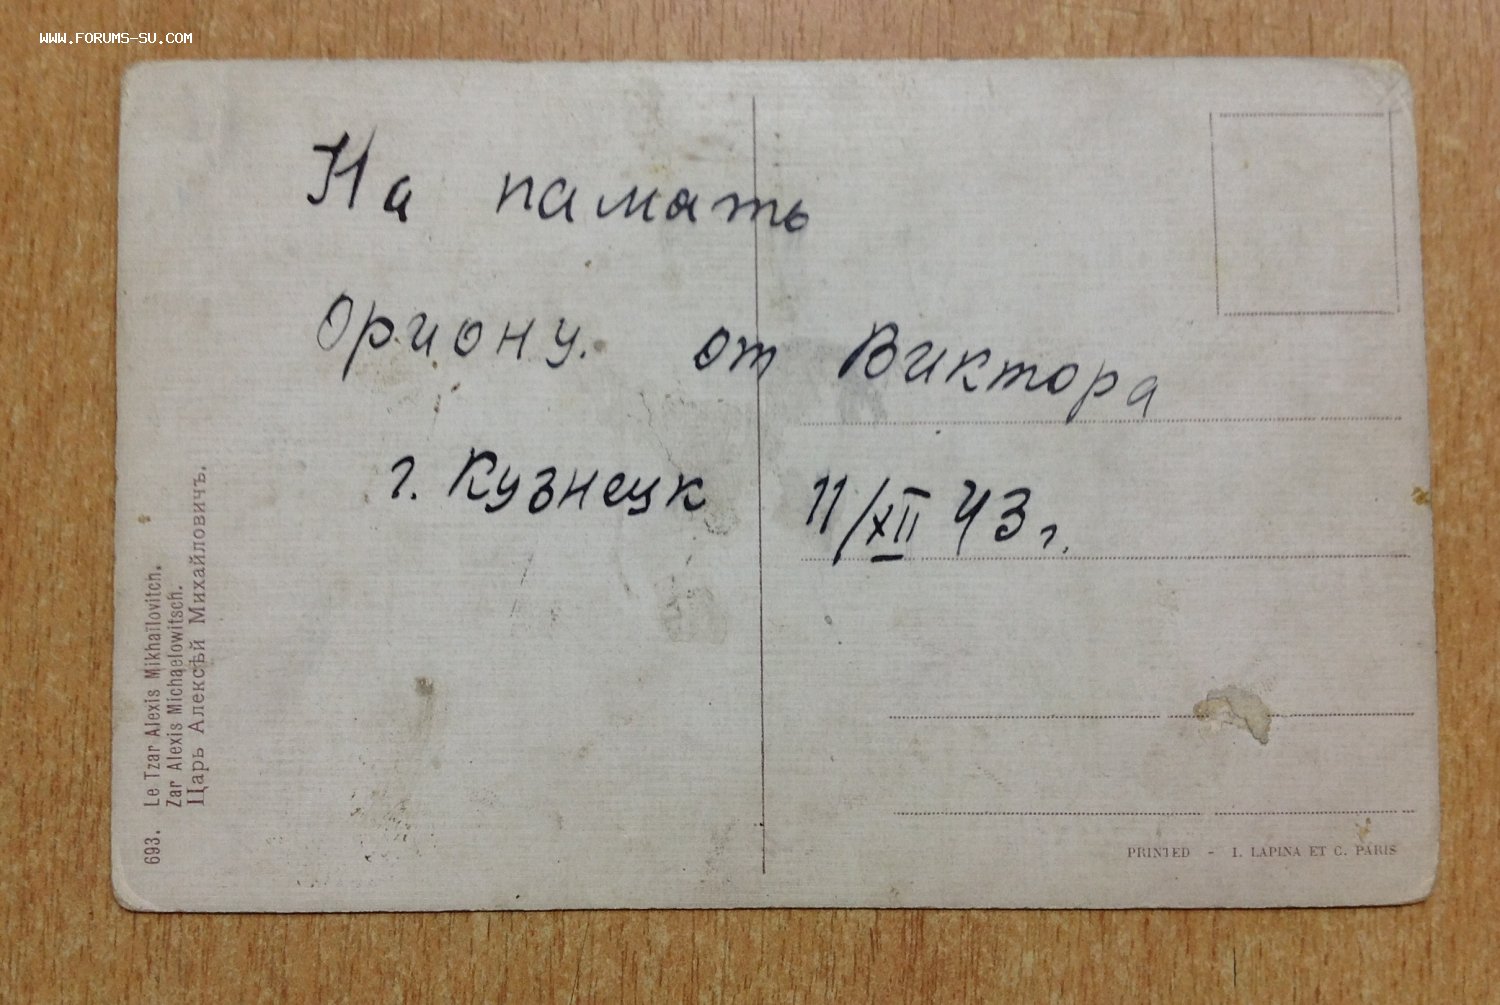 WWW.FORUMS-SU.COM
На памать
Ориону. от Виктора
г. Кузнецк 11/XII 43 г.
693. Le Tzar Alexis Mikhaïlovitch.
Zar Alexis Michaelowitsch.
Царь Алексѣй Михайловичъ.
PRINTED - I. LAPINA ET C. PARIS